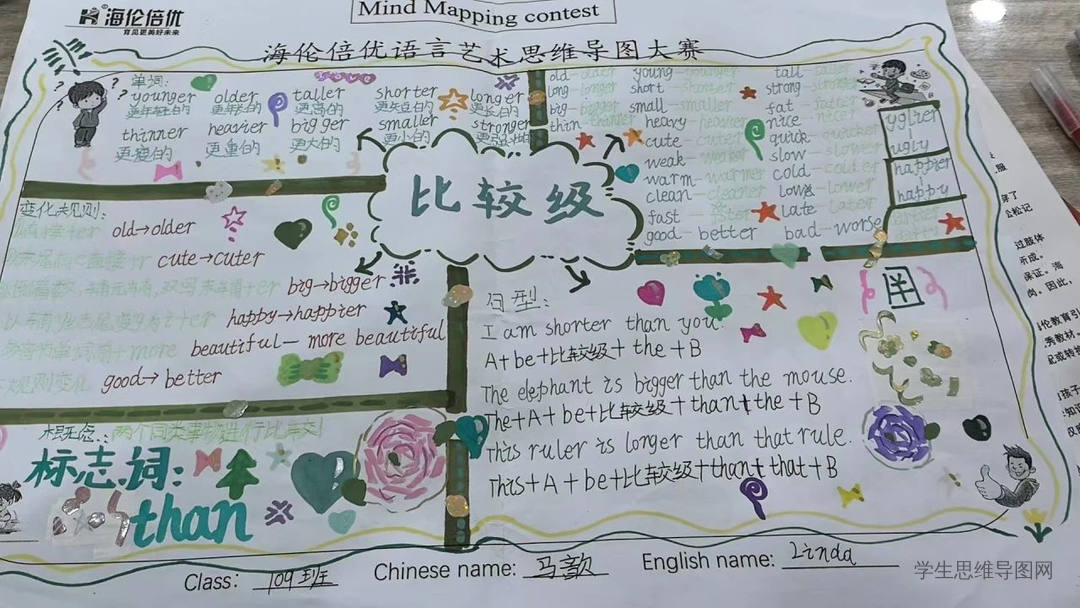 海伦倍优
育见更美好未来
Mind Mapping contest
海伦倍优语言艺术思维导图大赛
单词:
younger older taller shorter longer
更年轻的 更年老的 更高的 更矮的 更长的
thinner heavier bigger smaller stronger
更瘦的 更重的 更大的 更小的 更强壮的
old-older
long-longer
big-bigger
thin-thinner
young-younger
short-shorter
small-smaller
heavy-heavier
cute-cuter
weak-weaker
warm-warmer
clean-cleaner
fast-faster
good-better
tall-taller
strong-stronger
fat-fatter
nice-nicer
quick-quicker
slow-slower
cold-colder
low-lower
late-later
bad-worse
uglier
ugly
happier
happy
比较级
变化规则:
old→older
cute→cuter
big→bigger
happy→happier
more
beautiful— more beautiful
不规则变化 good→better
概念:两个同类事物进行比较
标志词:
than
句型:
I am shorter than you.
A+be+比较级+the+B
The elephant is bigger than the mouse.
The+A+be+比较级+than+the+B
This ruler is longer than that rule.
This+A+be+比较级+than+that+B
Class: 109班 Chinese name: 马歆 English name: Linda
学生思维导图网